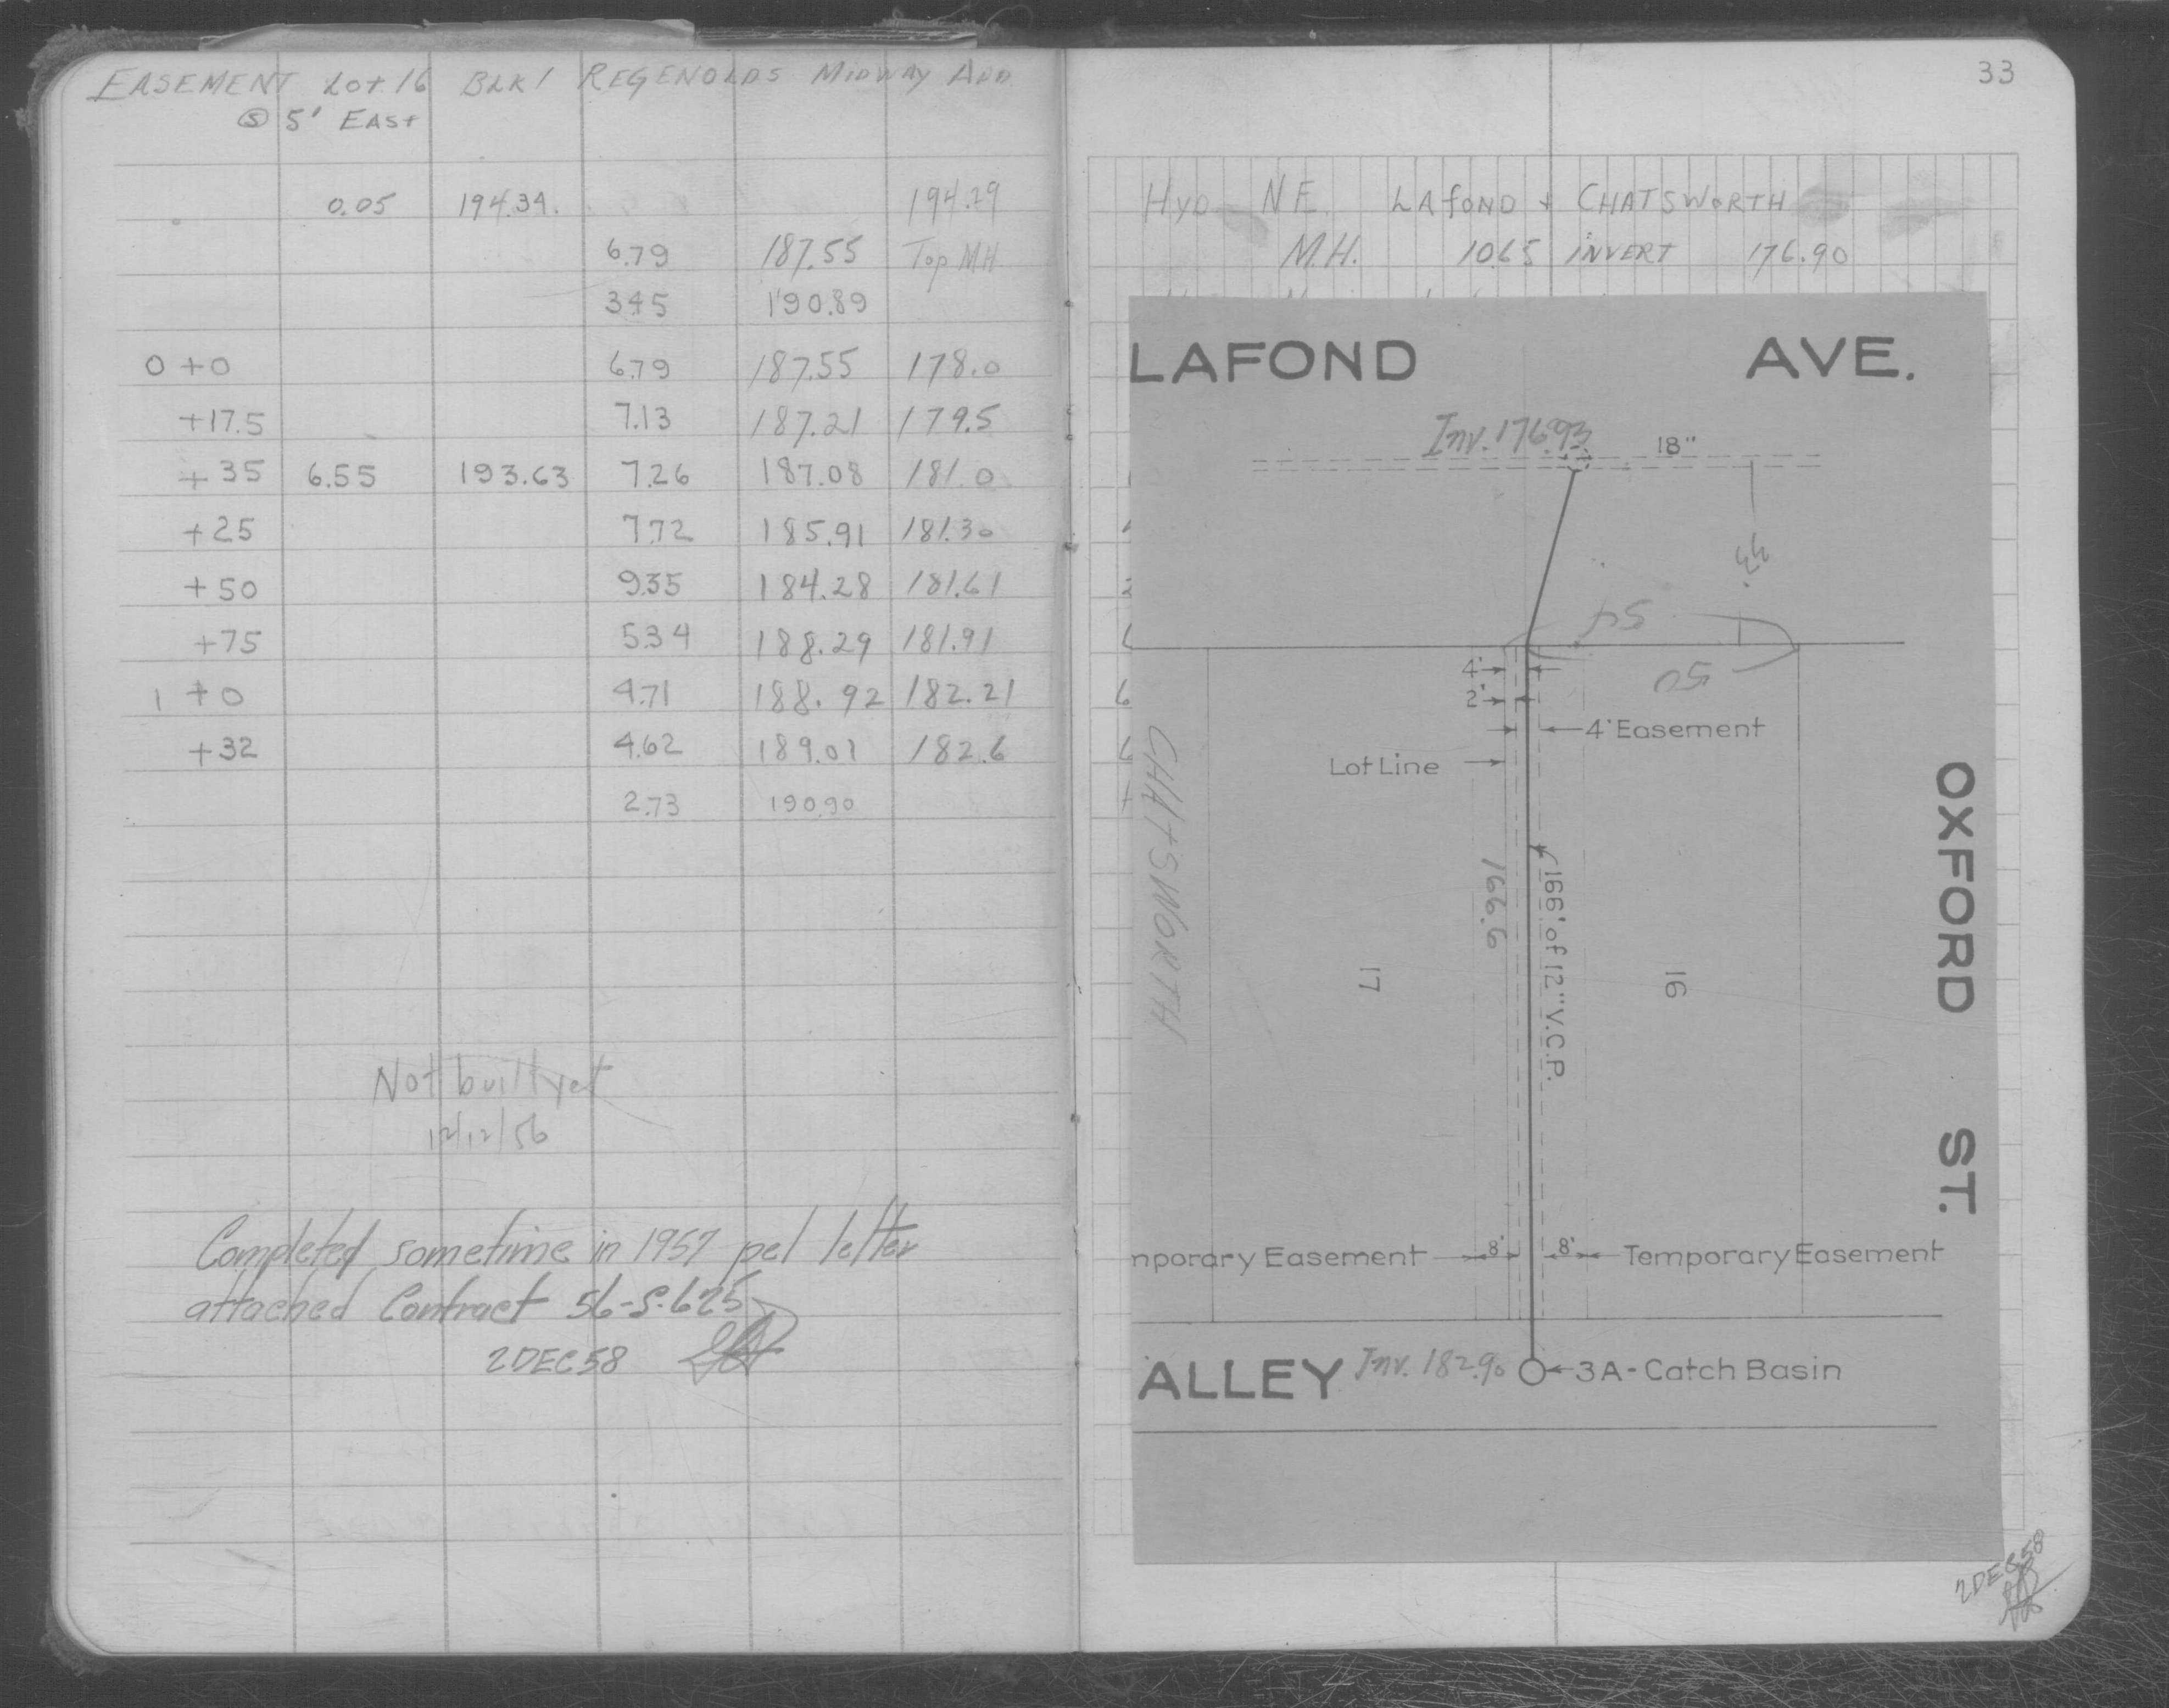 EASEMENT Lot 16 BLK 1 REGENOLDS MIDWAY ADD
Ⓢ 5' EAST
0.05 194.34. 194.29
6.79 187.55 Top MH
3.45 190.89
0+0 6.79 187.55 178.0
+17.5 7.13 187.21 179.5
+35 6.55 193.63 7.26 187.08 181.0
+25 7.72 185.91 181.30
+50 9.35 184.28 181.61
+75 5.34 188.29 181.91
1+0 4.71 188.92 182.21
+32 4.62 189.01 182.6
2.73 190.90
Not built yet
12/12/56
Completed sometime in 1957 per letter
attached Contract 56-S-625
2DEC58
33
Hyd NE LAfOND + CHATSWORTH
M.H. 10.65 INVERT 176.90
LAFOND AVE.
Inv. 176.93
18"
33
54
50
4'
2'
4' Easement
Lot Line
CHATSWORTH
166.6
166' of 12" V.C.P.
17
16
OXFORD ST.
mporary Easement 8' 8' Temporary Easement
ALLEY Inv. 182.90 3A-Catch Basin
2DEC58